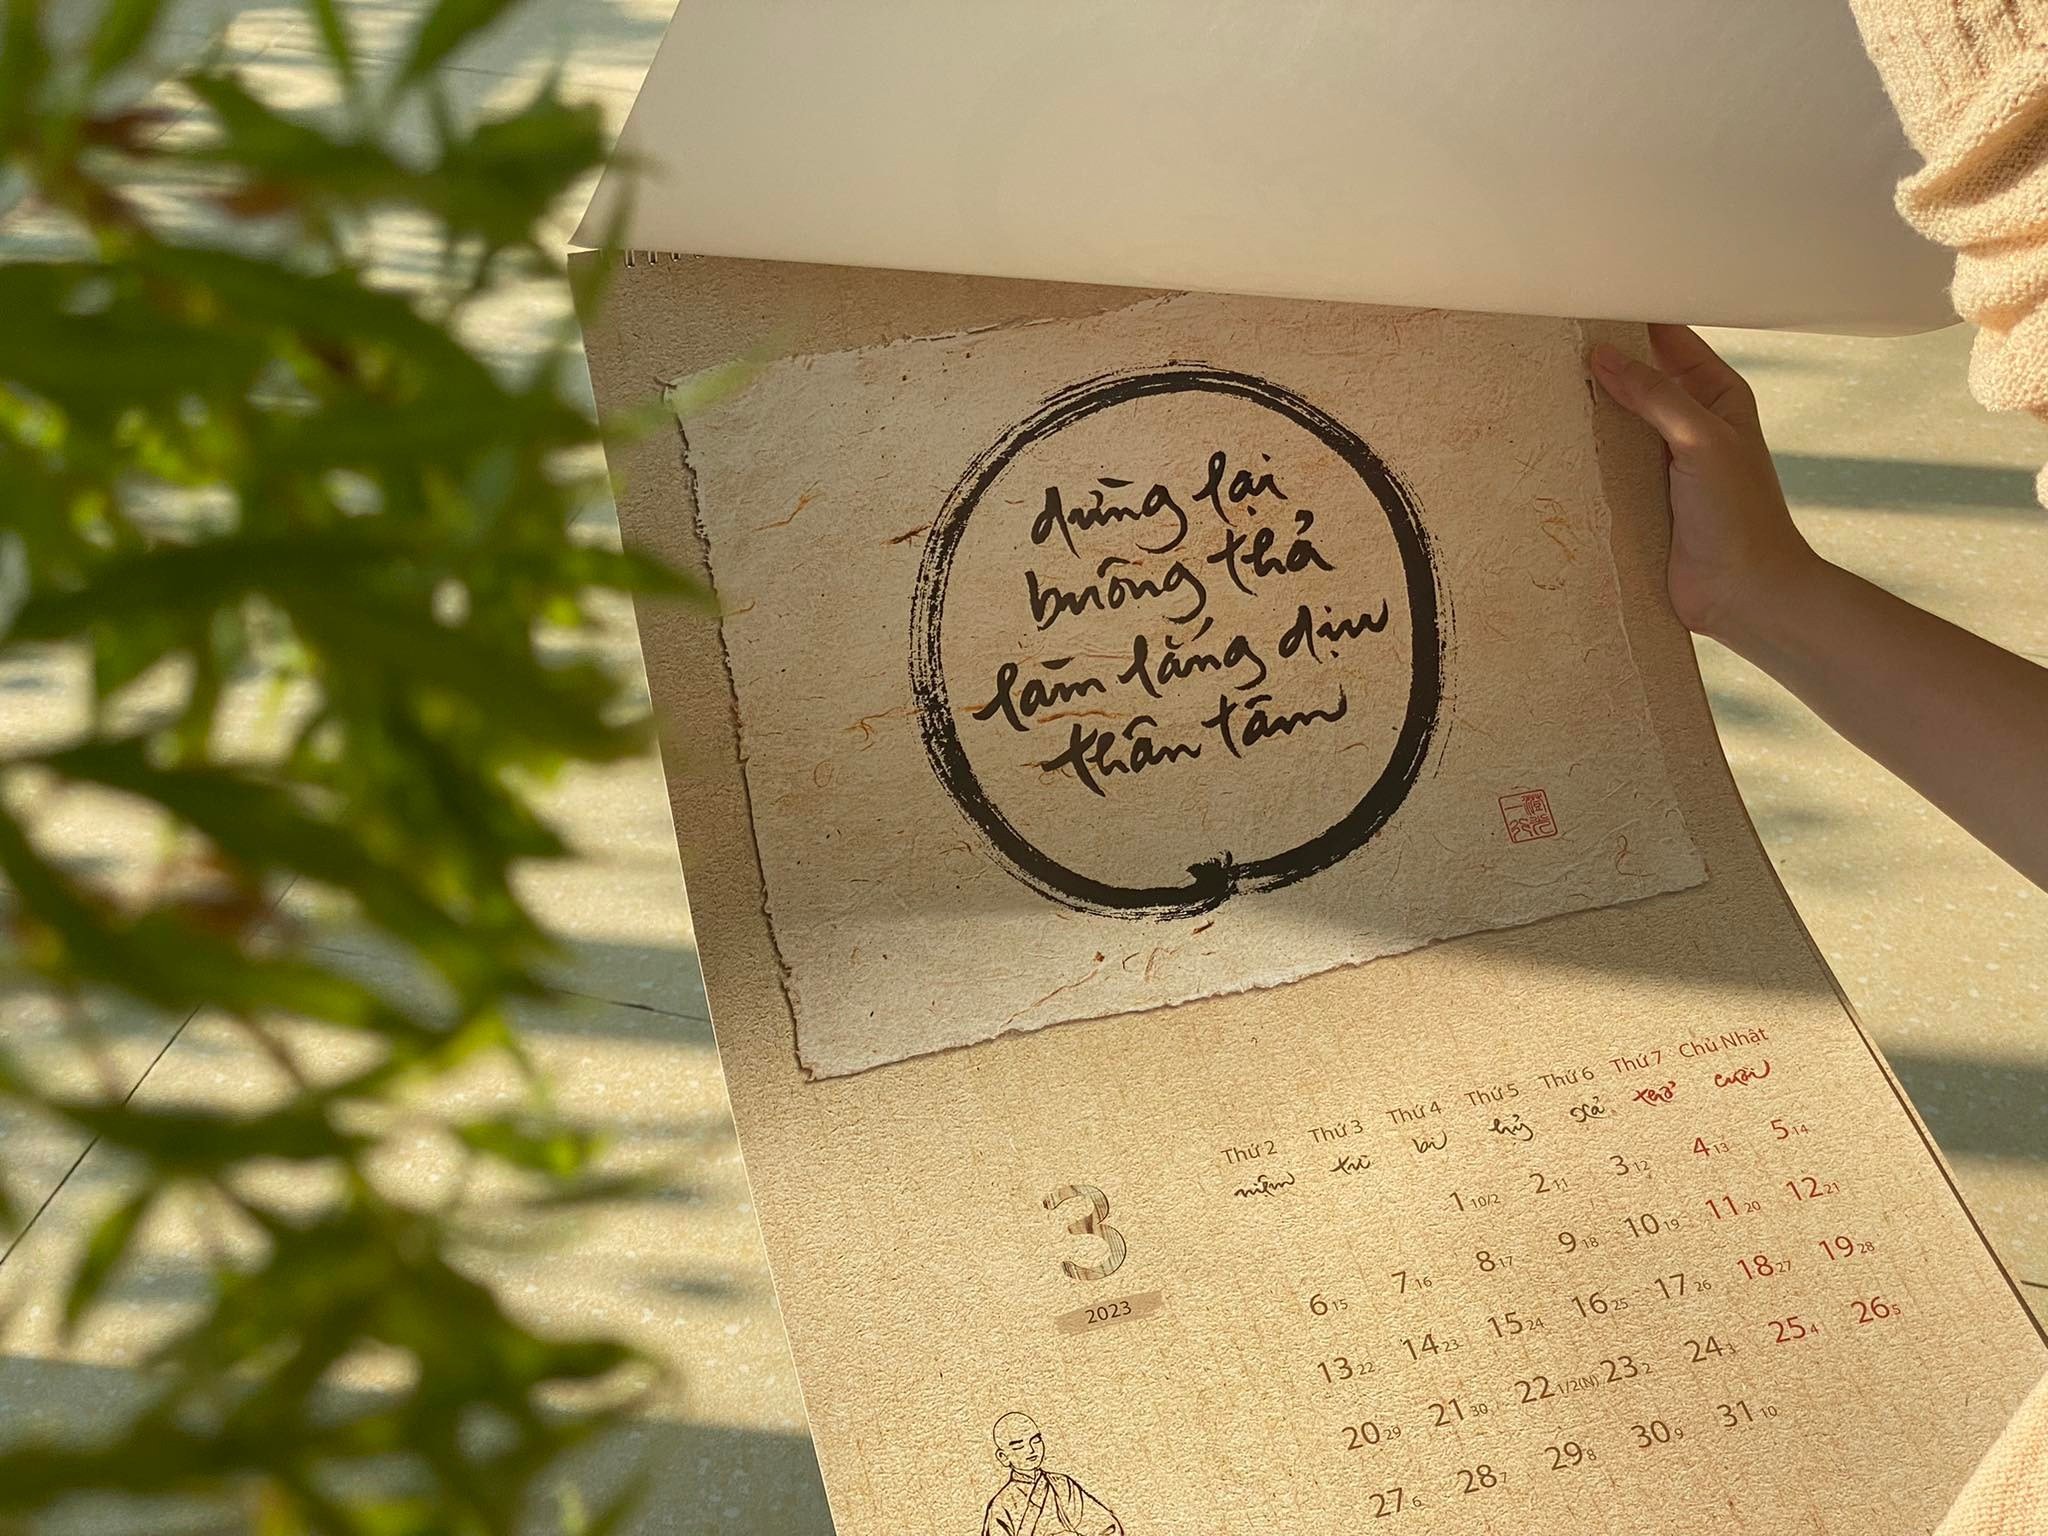 dừng lại
buông thả
làm lắng dịu
thân tâm
Thứ 2 Thứ 3 Thứ 4 Thứ 5 Thứ 6 Thứ 7 Chủ Nhật
niệm từ bi hỷ xả thở cười
3
2023
1 10/2 2 11 3 12 4 13 5 14
6 15 7 16 8 17 9 18 10 19 11 20 12 21
13 22 14 23 15 24 16 25 17 26 18 27 19 28
20 29 21 30 22 1/2(N) 23 2 24 3 25 4 26 5
27 6 28 7 29 8 30 9 31 10